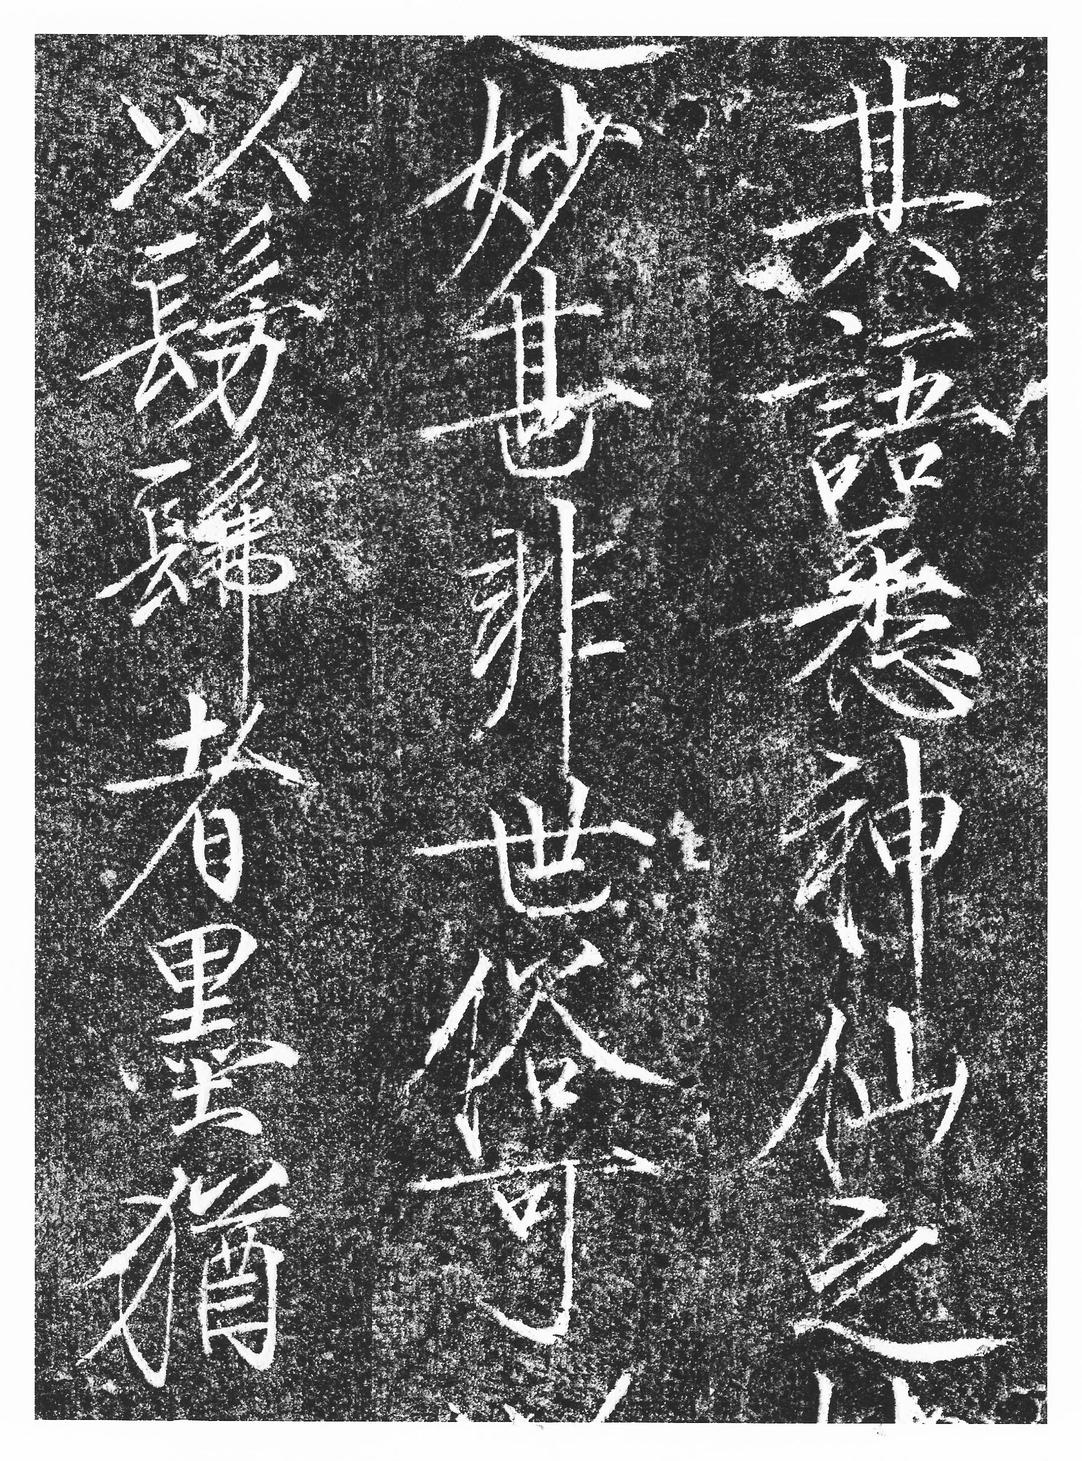 其語悉神仙之
妙甚非世俗可
以髣髴者墨猶